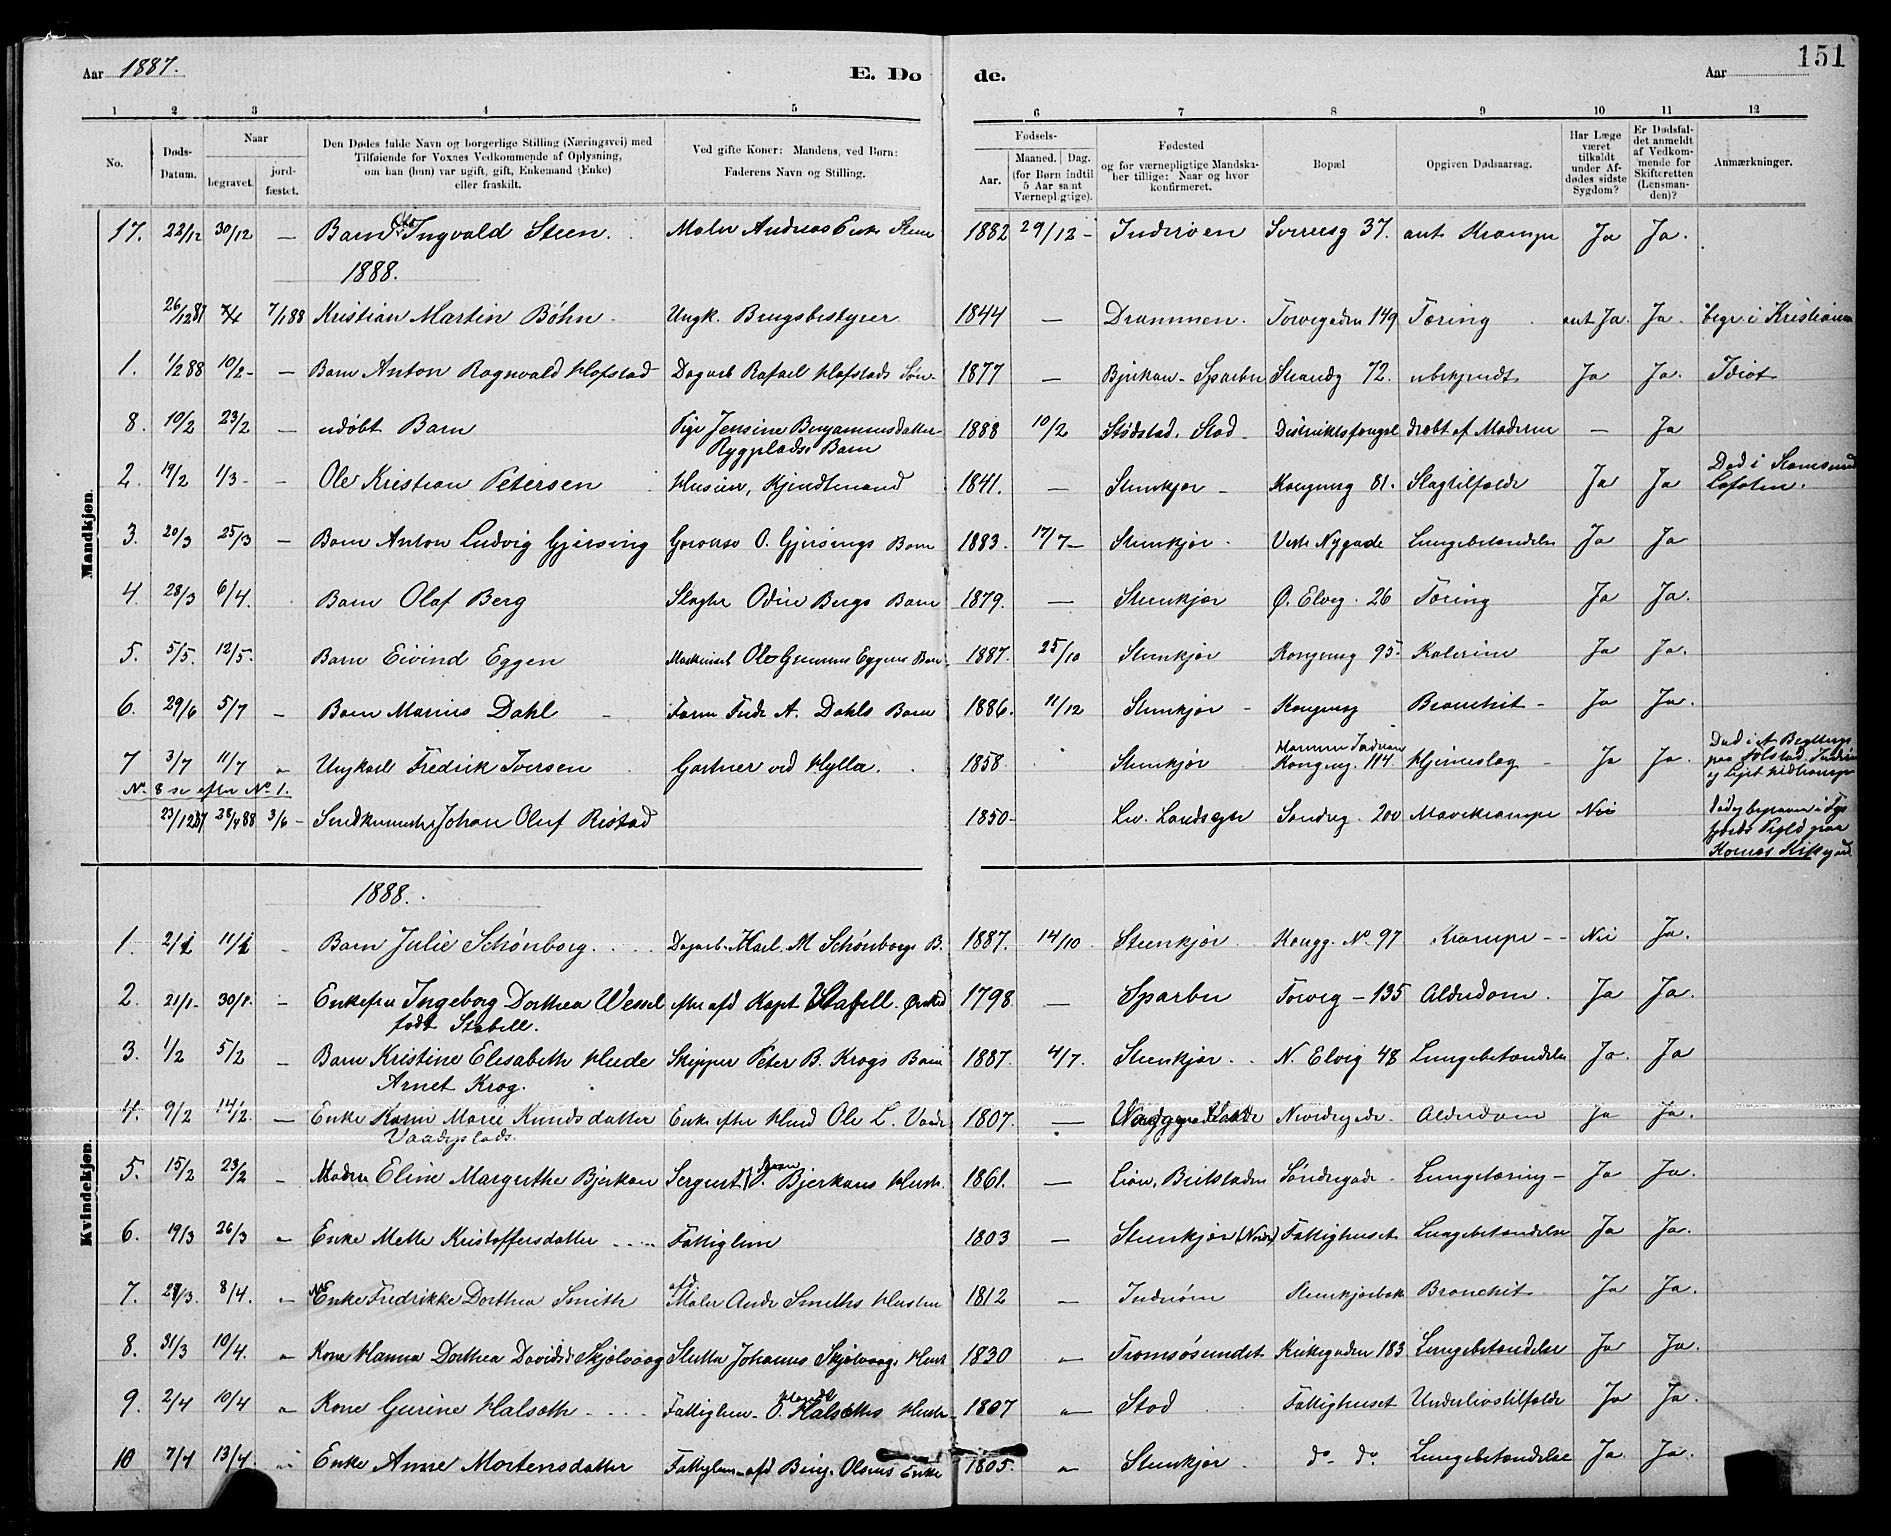 151
Aar 1887. E. Dø de. Aar
1 2 3 4 5 6 7 8 9 10 11 12
No. Døds-Datum. Naar begravet. jord-fæstet. Den Dødes fulde Navn og borgerlige Stilling (Næringsvei) med Tilføiende for Voxnes Vedkommende af Oplysning, om han (hun) var ugift, gift, Enkemand (Enke) eller fraskilt. Ved gifte Koner: Mandens, ved Børn: Faderens Navn og Stilling. Fødsels- Aar. Maaned. Dag. (for Børn indtil 5 Aar samt Værnepligtige). Fødested og for værnepligtige Mandskaber tillige: Naar og hvor konfirmeret. Bopæl Opgiven Dødsaarsag. Har Læge været tilkaldt under Afdødes sidste Sygdom? Er Dødsfaldet anmeldt af Vedkommende for Skifteretten (Lensmanden)? Anmærkninger.
Mandkjøn.
17. 22/12 30/12 — Barn Ingvald Steen. Maler Andreas Steen 1882 29/12 - Inderøen 37. ant Krampe Ja Ja.
1888.
26/12 87 7/1 88 Kristian Martin Bøhn. Ungk. Brugsbestyrer 1844 — Drammen. Torvegaden 149 Tæring ant Ja. Ja. begr. i Kristiania
1. 1/2 88 10/2 - — Barn Anton Ragnvald Hofstad Dagarb Rafael Hofstads Søn 1877 — Bjerkan - Sparbu Strandg 72. ubekjendt Ja Ja. Idiot
8. 10/2 23/2 — udøbt Barn Pige Jensine Benjaminsdatter 1888 10/2 Stod - Distriktsfængsel dræbt af Moderen — Ja
Ryggplads Barn
2. 19/2 1/3 - — Ole Kristian Petersen Husier, Kjendtmand 1841. — Stenkjær - Kongensg 81. Slagtilfælde Ja Ja Død i Stamsund Lofoten.
3. 20/3 25/3 — Barn Anton Ludvig Gjersing O. Gjersings Barn 1883. 17/7 — Stenkjær. Nygade Lungebetændelse Ja Ja
4. 28/3 6/4. Barn Olaf Berg Slagter Odin Bergs Barn 1879. — Stenkjær Ø. Elveg. 26 Tæring Ja Ja.
5. 5/5. 12/5. Barn Eivind Eggen Maskinist Ole Eggens Barn 1887. 25/10 Stenkjær Kongensg 95. Kolerine Ja Ja.
6. 29/6 5/7 — Barn Marius Dahl Farver Fredr A. Dahls Barn 1886. 11/12 Stenkjær - Kongensg Bronchit - Ja Ja.
7 3/7 11/7 „ Ungkarl Fredrik Iversen Gartner ved Hylla. 1858. Stenkjær Kongensg. 114 Hjerneslag - Ja Ja.
No. 8 se efter No 1.
23/12 87 28/4 88 3/6 - Johan Oluf Ristad 1850 - Lev. Landsogn Sandveg. 200 Mavekrampe Nei
1888.
Kvindekjøn.
1. 2/1 11/1 „ Barn Julie Schönborg. Dagarb. Karl. M Schönborgs B. 1887. 14/10. Stenkjær. Kongg. No 97 Krampe - - Nei Ja.
2. 21/1 - 30/1. — Enkefru Ingeborg Dorthea Wessel efter afd Kapt 1798. — Sparbu Torveg - 135 Alderdom. Ja Ja.
født Stabell.
3. 1/2 5/2 — Barn Kristine Elisabeth Hude Skipper Peter B. Krogs Barn 1887. 4/7. Stenkjær. N. Elveg 48 Lungebetændelse Ja. Ja
Arnet Krog.
4. 9/2 14/2. — Enke Karen Marie Knudsdatter Enke efter Hmd Ole L. 1807. — Nordregade. Alderdom Ja Ja.
5. 15/2 23/2 — Madam Eline Margrethe Bjerkan Sergeant Bjerkans Hustr. 1861. — Beitstaden Søndregade. Lungetæring - Ja Ja.
6. 19/3 26/3 „ Enke Mette Kristoffersdatter Fattiglem 1803 — Stenkjær Fattighuset Lungebetændelse Ja Ja.
7. 27/3. 8/4. „ Enke Fredrikke Dorthea Smith afd Maler Andr Smiths Hustru 1812 — Inderøen Bronchit Ja Ja.
8. 31/3 10/4. „ Kone Hanna Dorthea Davidsd. Skjelvaag Johannes Skjelvaags Hustr 1830 „ Tromsøsundet Kirkegaden 183 Lungebetændelse Ja Ja.
9. 2/4 10/4 „ Kone Gurine Halseth Fattiglem - O. Halseths Hustr. 1807 „ Stod Fattighuset Underlivstilfælde Ja Ja.
10 7/4 13/4. Enke Anne Mortensdatter Fattiglem - afd Benj. Olsens Enke 1805. „ Stenkjær. do. do. Lungebetændelse Ja. Ja.